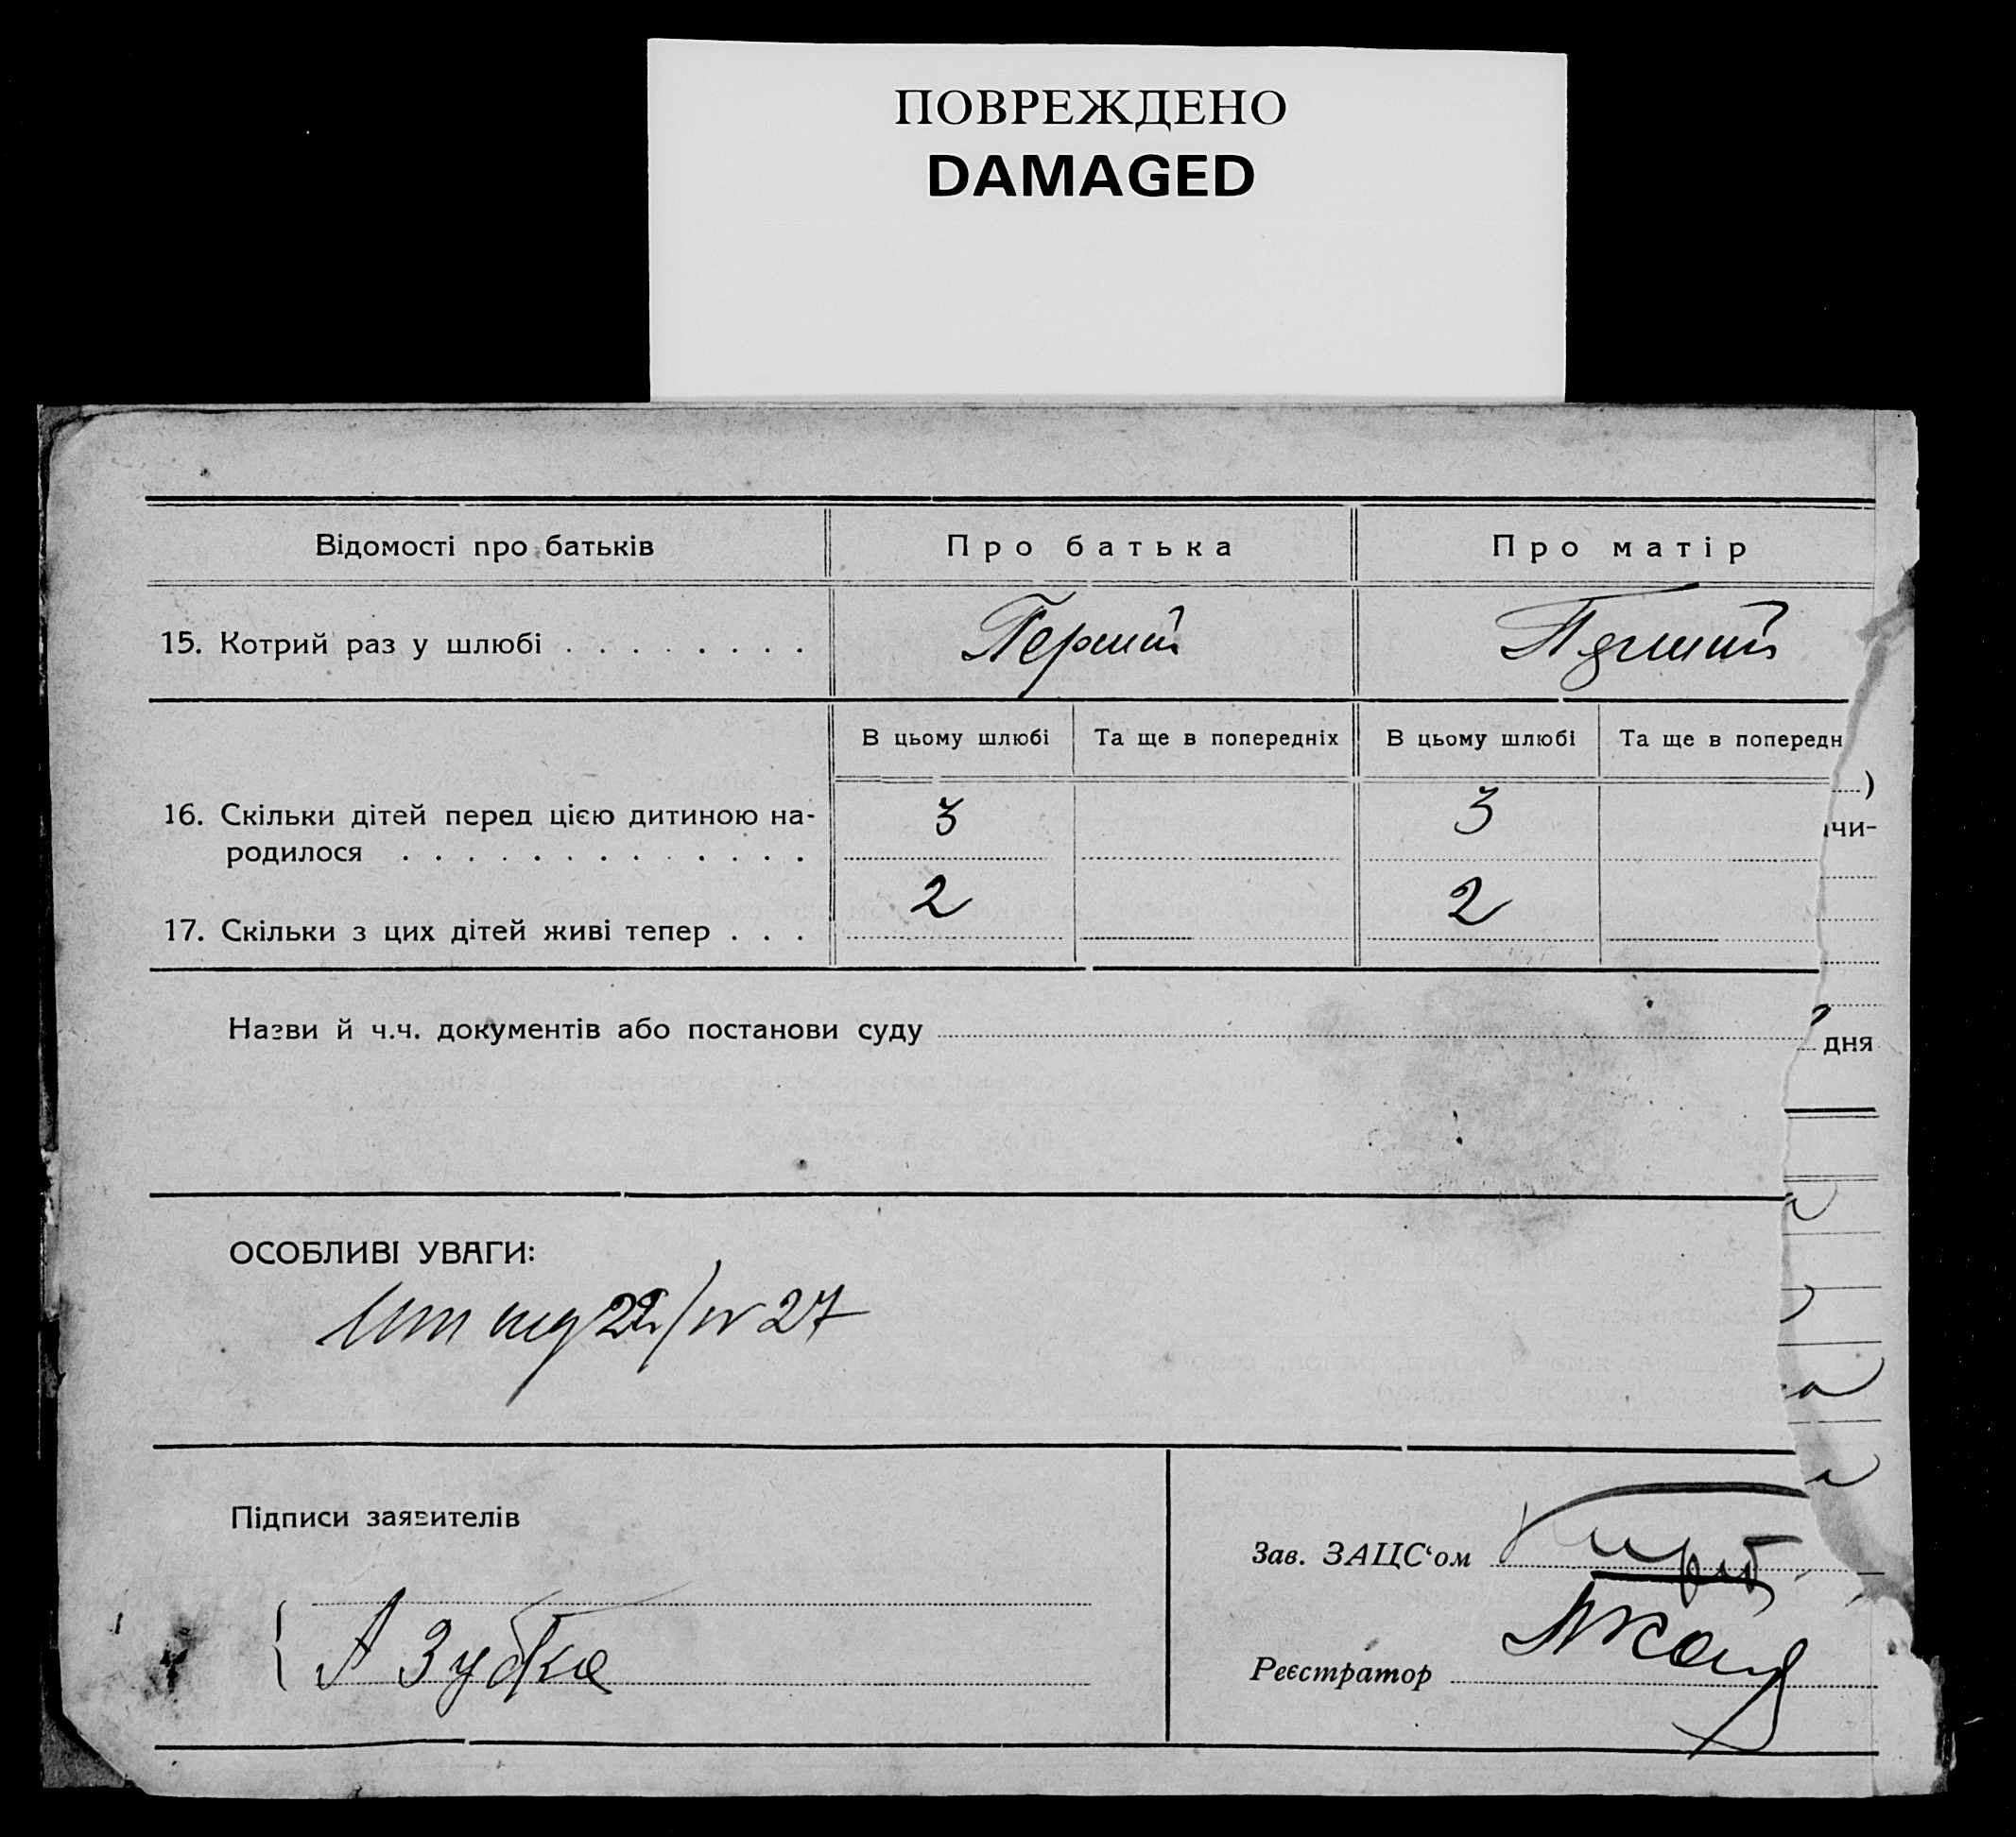 ПОВРЕЖДЕНО
DAMAGED
Відомості про батьків
Про батька
Про матір
15. Котрий раз у шлюбі . . . . . . . .
Перший
В цьому шлюбі
Та ще в попередніх
В цьому шлюбі
Та ще в попередн
)
16. Скільки дітей перед цією дитиною на-
3
3
чи-
родилося . . . . . . . . . . . . .
2
2
17. Скільки з цих дітей живі тепер . . .
Назви й ч.ч. документів або постанови суду
дня
ОСОБЛИВІ УВАГИ:
27
Підписи заявителів
Зав. ЗАЦС‘ом
А Зубко
Реєстратор